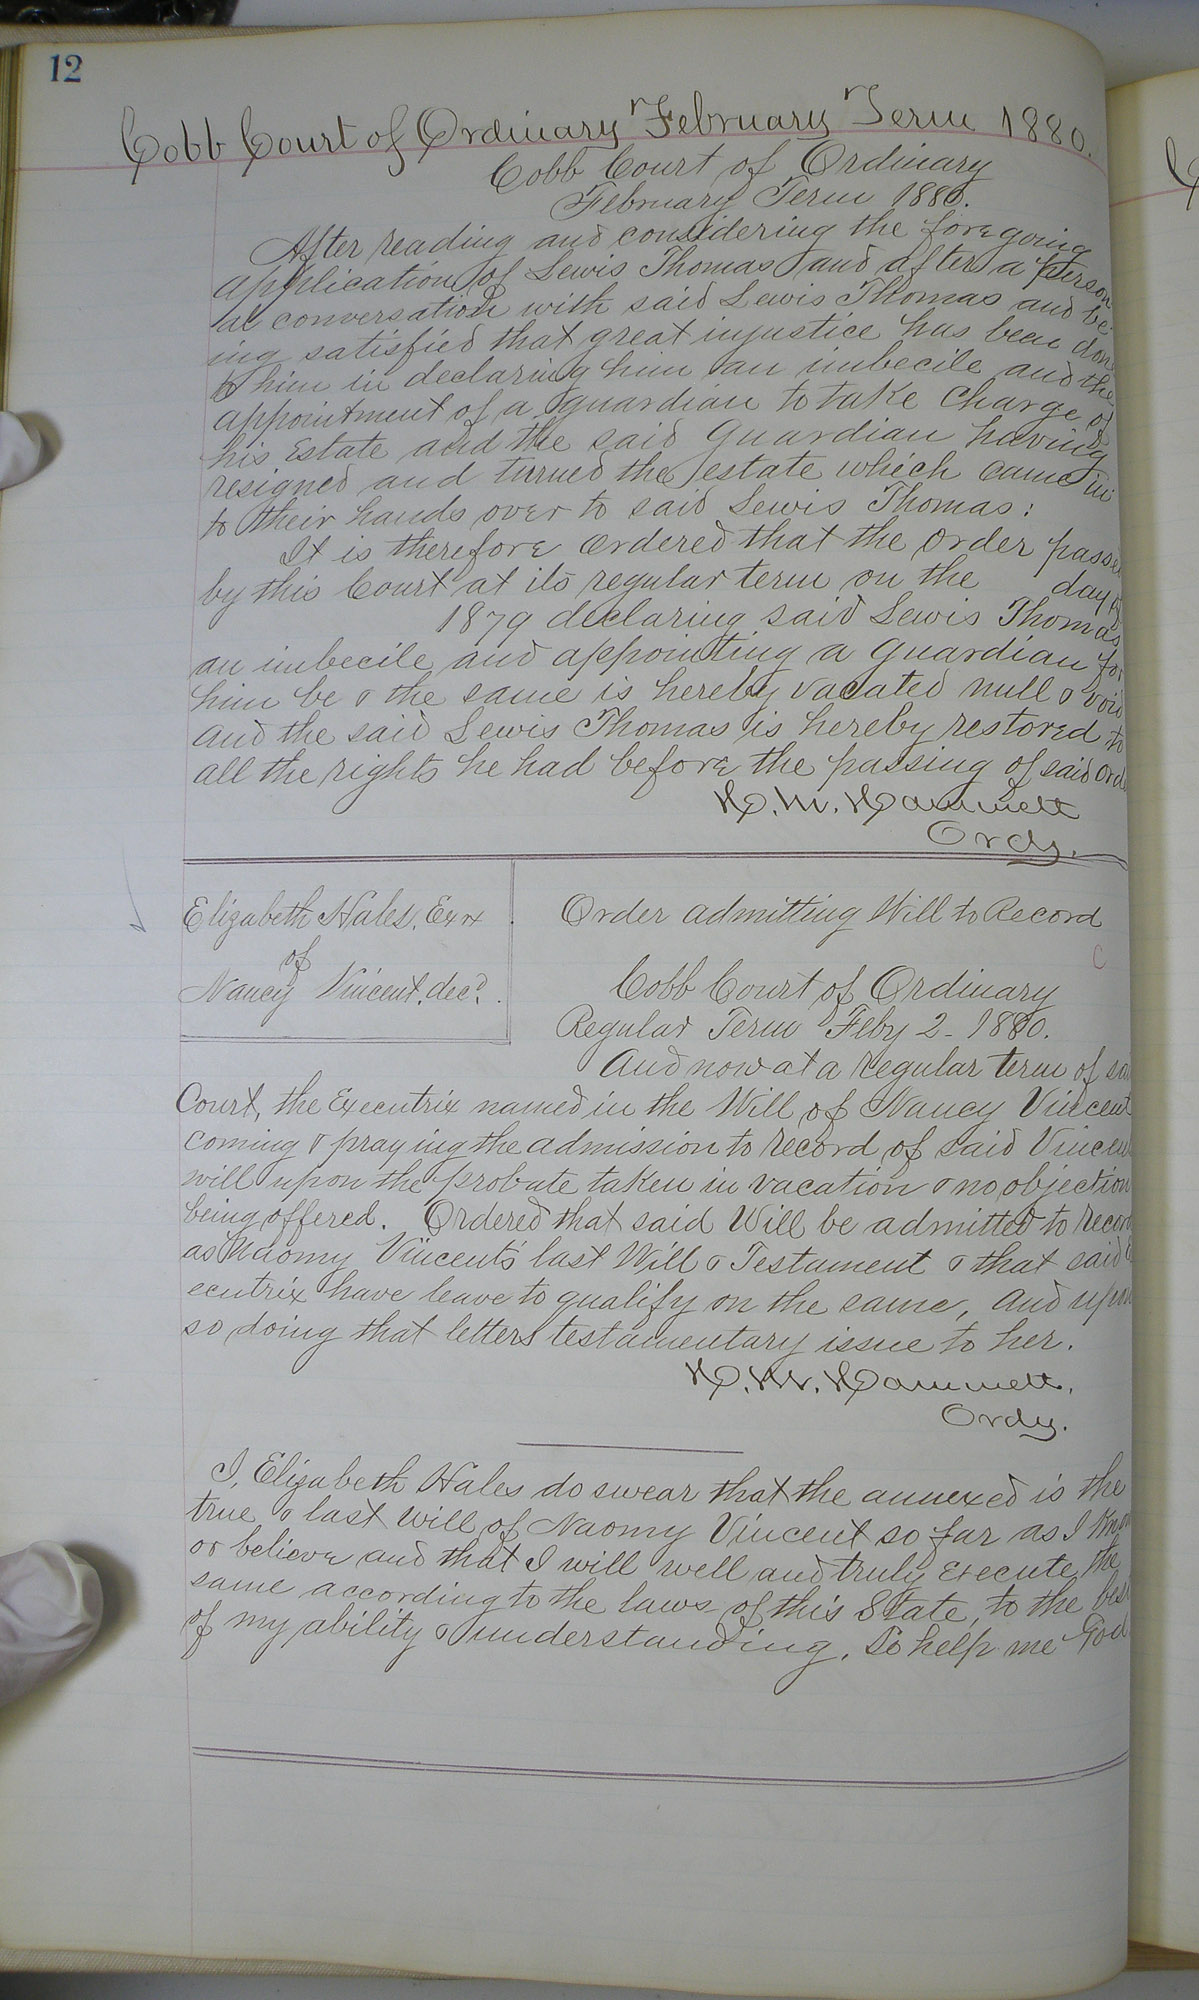 12
Cobb Court of Ordinary February Term 1880.
Cobb Court of Ordinary
February Term 1880.
After reading and considering the foregoing
application of Lewis Thomas and after a person
al conversation with said Lewis Thomas and be
ing satisfied that great injustice has been done
to him in declaring him an imbecile and the
appointment of a guardian to take charge of
his Estate and the said Guardian having
resigned and turned the estate which came in
to their hands over to said Lewis Thomas:
It is therefore ordered that the order passed
by this Court at its regular term on the day of
1879 declaring said Lewis Thomas
an imbecile and appointing a Guardian for
him be & the same is hereby vacated null & void
and the said Lewis Thomas is hereby restored to
all the rights he had before the passing of said Orde
H. M. Hammett
Ordy.
Elizabeth Hales, Exrx
of
Nancy Vincent, decd.
Order admitting Will to Record
C
Cobb Court of Ordinary
Regular Term Feby 2 - 1880.
And now at a regular term of sai
Court, the Executrix named in the Will of Nancy Vincent
coming & praying the admission to record of said Vincent
will upon the probate taken in vacation & no objection
being offered. Ordered that said Will be admitted to record
as Naomy Vincent's last Will & Testament & that said Ex
ecutrix have leave to qualify on the same, and upon
so doing that letters testamentary issue to her.
H. M. Hammett.
Ordy.
I, Elizabeth Hales do swear that the annexed is the
true & last will of Naomy Vincent so far as I know
or believe and that I will well and truly execute the
same according to the laws of this State, to the best
of my ability & understanding. So help me God